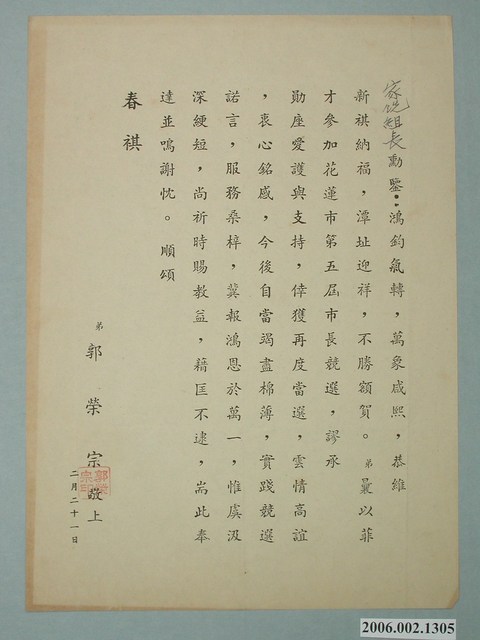 家悅組長勳鑒：鴻鈞氣轉，萬象咸熙，恭維
新祺納福，潭址迎祥，不勝額賀。弟曩以菲
才參加花蓮市第五屆市長競選，謬承
勛座愛護與支持，倖獲再度當選，雲情高誼
，衷心銘感，今後自當竭盡棉薄，實踐競選
諾言，服務桑梓，冀報鴻恩於萬一，惟虞汲
深綆短，尚祈時賜教益，藉匡不逮，耑此奉
達並鳴謝忱。 順頌
春祺
弟 郭榮宗敬上
二月二十一日
2006.002.1305